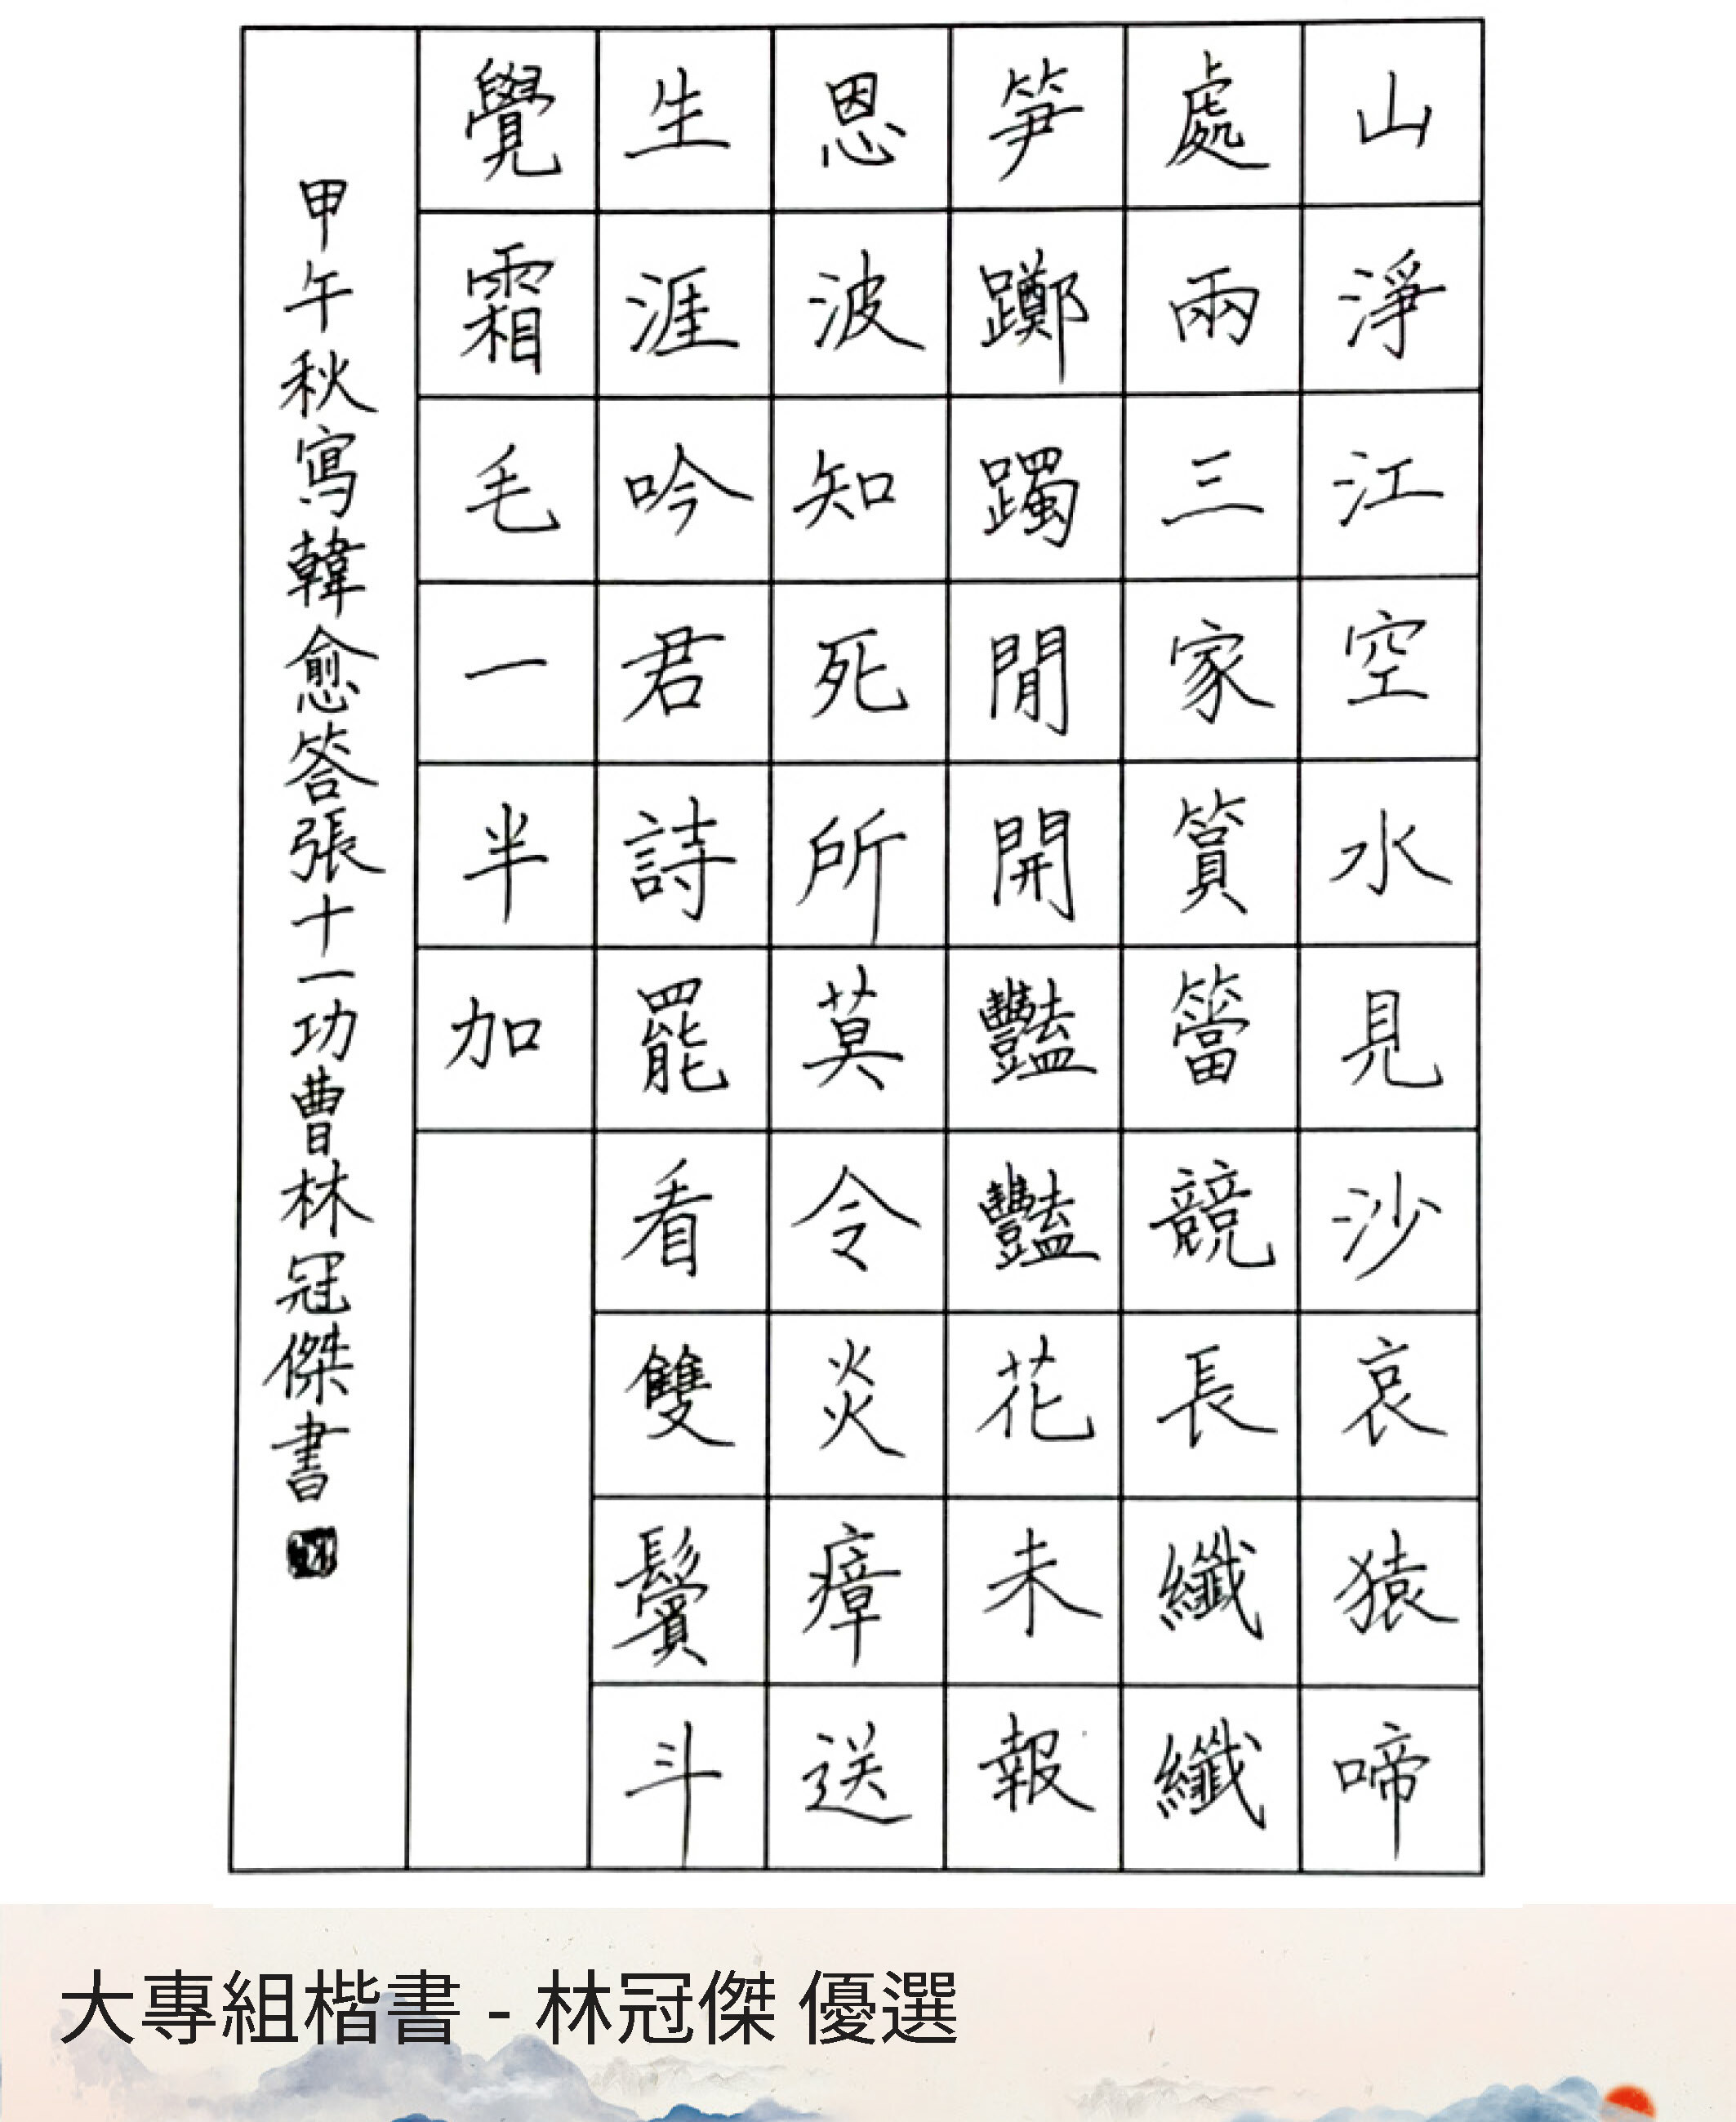 山淨江空水見沙哀猿啼
處兩三家篔簹競長纖纖
笋躑躅閒開豔豔花未報
恩波知死所莫令炎瘴送
生涯吟君詩罷看雙鬢斗
覺霜毛一半加
甲午秋寫韓愈答張十一功曹林冠傑書
大專組楷書 - 林冠傑 優選